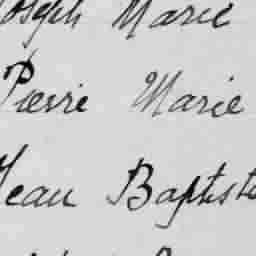 Joseph Marie
Pierre Marie
Jean Baptiste